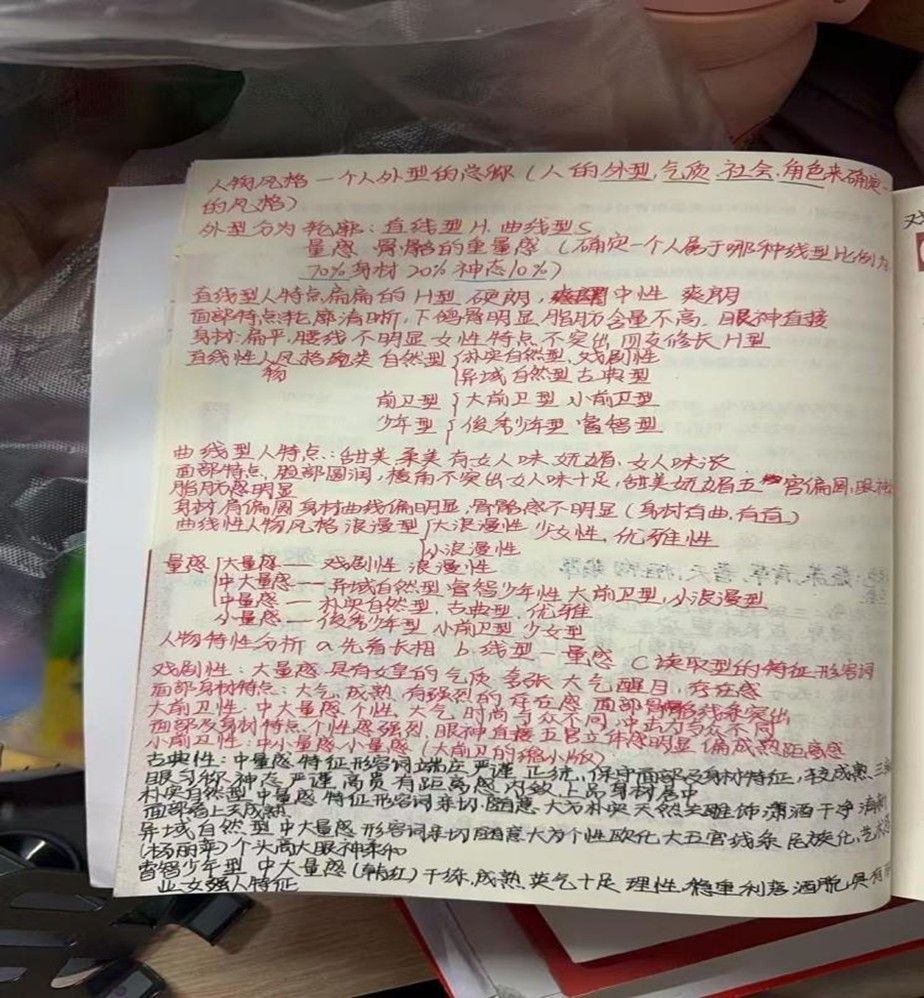 人物风格 一个人外型的总称（人的外型，气质 社会，角色来确定一
的风格）
外型分为 轮廓：直线型H. 曲线型S
量感 骨骼的重量感（确定一个人属于哪种线型比例为
70%身材 20%神态10%）
直线型人特点扁扁的 H型 硬朗， 中性 爽朗
面部特点轮廓清晰，下颌骨明显，脂肪含量不高，眼神直接
身材：扁平，腰线不明显，女性特点不突出，四支修长，H型
直线性人风格 类 自然型 朴实自然型，戏剧性
物 异域自然型 古典型
前卫型 大前卫型 小前卫型
少年型 俊秀少年型，睿智型
曲线型人特点：甜美 柔美 有女人味 妩媚，女人味浓
面部特点，脸部圆润，棱角不突出女人味十足，甜美妩媚五 官偏圆，眼神
脂肪感明显
身材肩偏圆 身材曲线偏明显，骨骼感不明显（身材有曲，有直）
曲线性人物风格 浪漫型 大浪漫性 少女性，优雅性
小浪漫性
量感 大量感— 戏剧性 浪漫性
中大量感— 异域自然型 睿智少年性 大前卫型，小浪漫型
中量感— 朴实自然型，古典型，优雅
小量感— 俊秀少年型 小前卫型 少女型
人物特性分析 a先看长相 b 线型—量感 C读取型的特征形容词
戏剧性：大量感 具有女皇的气质 夸张 大气醒目，存在感
面部身材特点：大气，成熟，有强烈的存在感 面部 线条突出
大前卫性，中大量感 个性，大气 时尚与众不同，中击力与众不同
面部及身材特点，个性感强烈，眼神直接五官立体感明显 偏成熟距离感
小前卫性：中小量感小量感（大前卫的缩小版）
古典性：中量感 特征形容词端庄 严谨 正统，保守面部及身材特征，较成熟 三
眼匀称 神态 严谨 高贵 有距离感 内敛 上品 身材居中
朴实自然型 中量感 特征形容词亲切 随意 大方 朴实 天然 雕饰 潇洒 干净 清
面部看上去成熟
异域自然型 中大量感 形容词亲切随意大方个性欧化大五官线条 民族化，艺术
（杨丽萍）个头高大眼神柔和
睿智少年型 中大量感（韩红）干练，成熟 英气十足 理性，稳重利落 洒脱，具有
业女强人特征